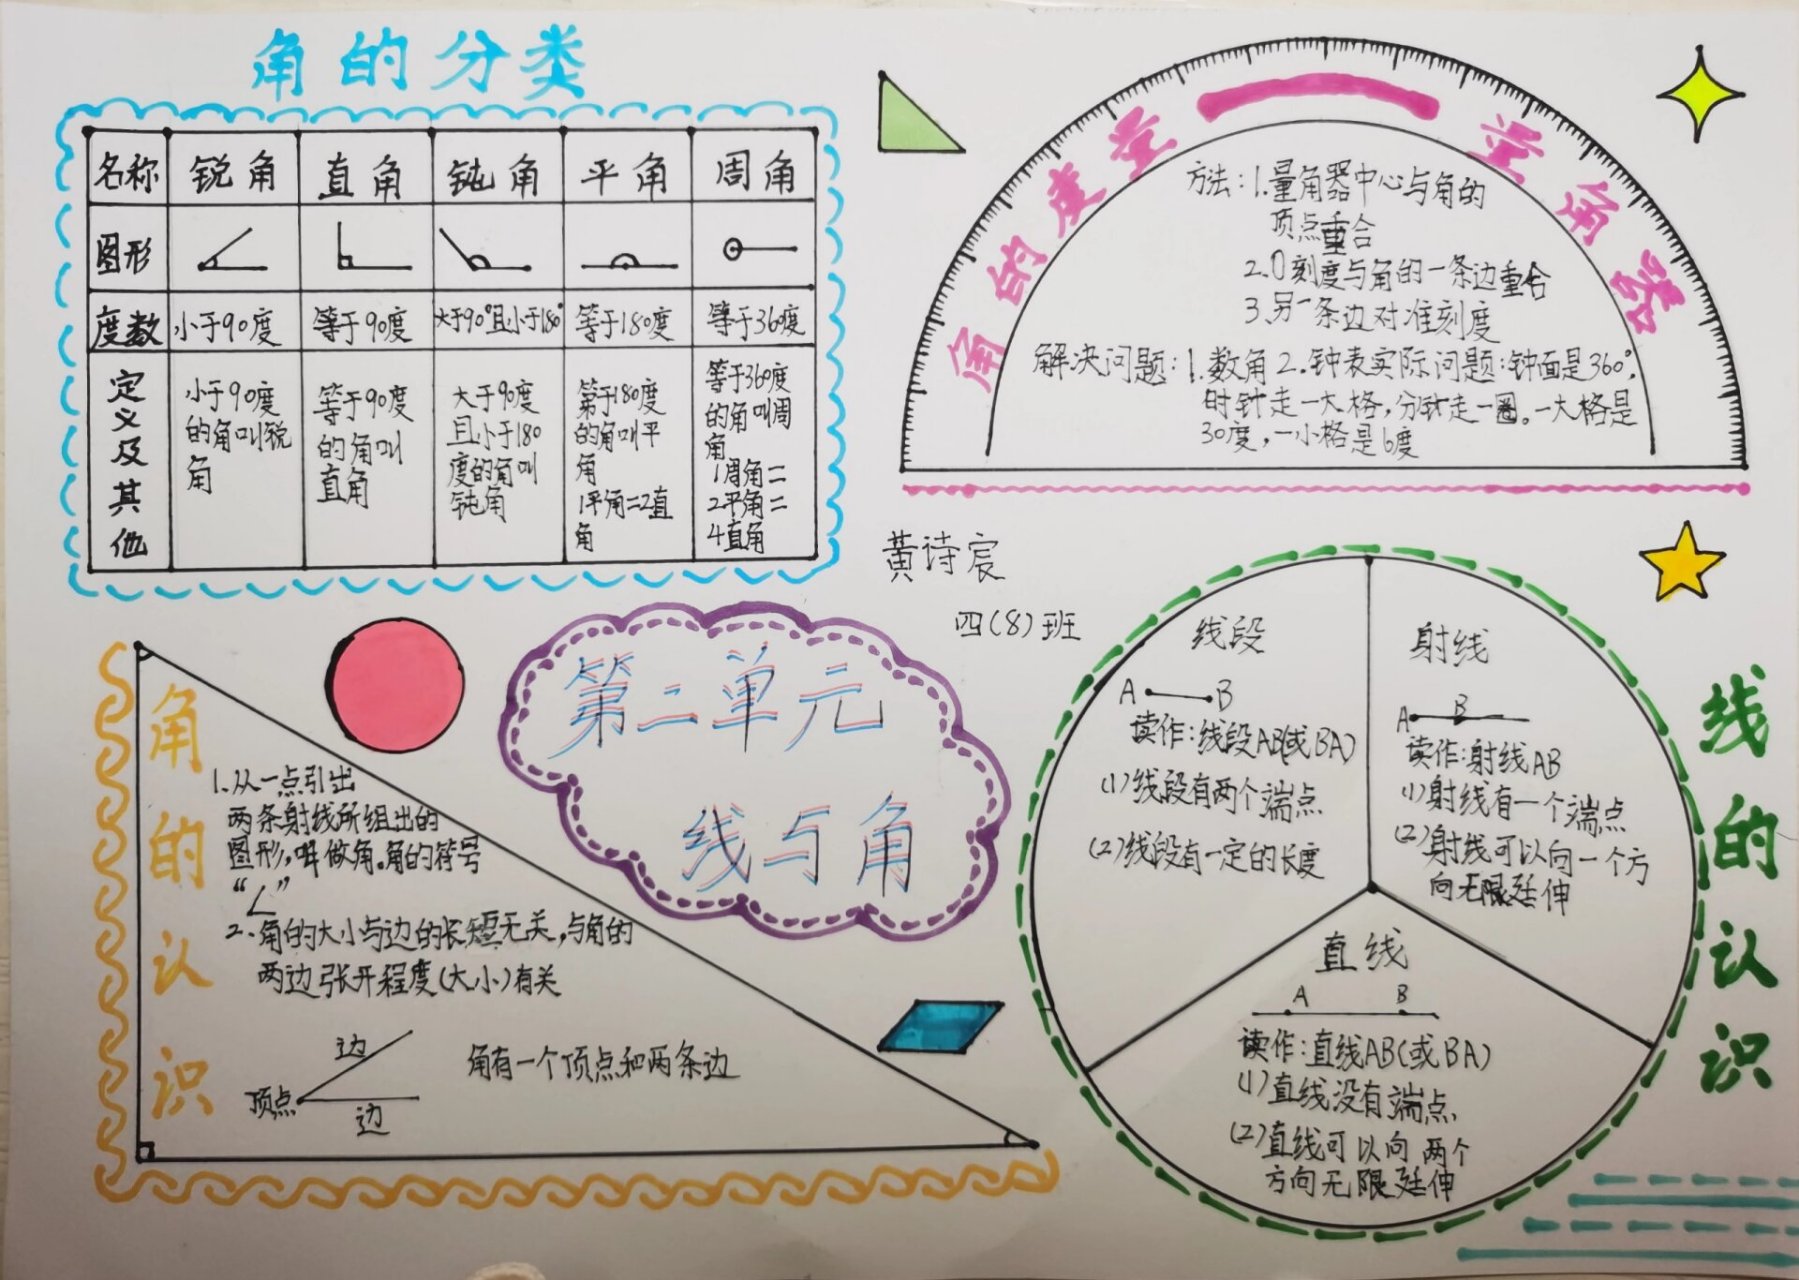 角的分类
名称 锐角 直角 钝角 平角 周角
图形
度数 小于90度 等于90度 大于90°且小于180° 等于180度 等于360度
定义及其他
小于90度
的角叫锐
角
等于90度
的角叫
直角
大于90度
且小于180
度的角叫
钝角
等于180度
的角叫平
角
1平角=2直
角
等于360度
的角叫周
角
1周角=
2平角=
4直角
角的度量——量角器
方法:1.量角器中心与角的
顶点重合
2.0刻度与角的一条边重合
3.另一条边对准刻度
解决问题:1.数角2.钟表实际问题:钟面是360°,
时针走一大格,分针走一圈。一大格是
30度,一小格是6度
黄诗宸
四(8)班
第二单元
线与角
角的认识
1.从一点引出
两条射线所组出的
图形,叫做角。角的符号
“∠”
2.角的大小与边的长短无关,与角的
两边张开程度(大小)有关
边
顶点
边
角有一个顶点和两条边
线的认识
线段
A B
读作:线段AB(或BA)
(1)线段有两个端点
(2)线段有一定的长度
射线
A B
读作:射线AB
(1)射线有一个端点
(2)射线可以向一个方
向无限延伸
直线
A B
读作:直线AB(或BA)
(1)直线没有端点
(2)直线可以向两个
方向无限延伸